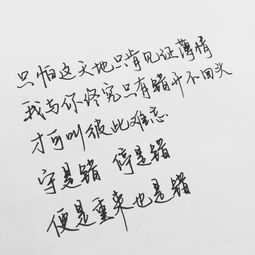 只怕这天地只肯见证薄情
我与你终究只有错开不回头
才可叫彼此难忘
守是错 停是错
便是重来也是错